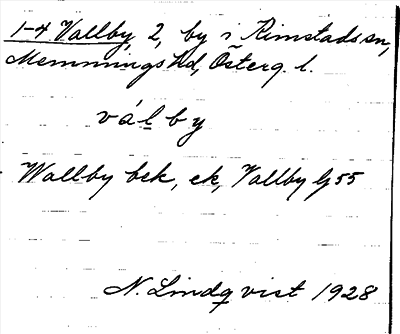 1-4 Vallby 2, by i Rimstads sn,
Memmings hd, Österg. l.
válby
Wallby bek, ek, Vallby G 55
N. Lindqvist 1928